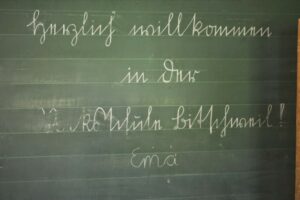 Herzlich willkommen
in der
Schule Bitschweil!